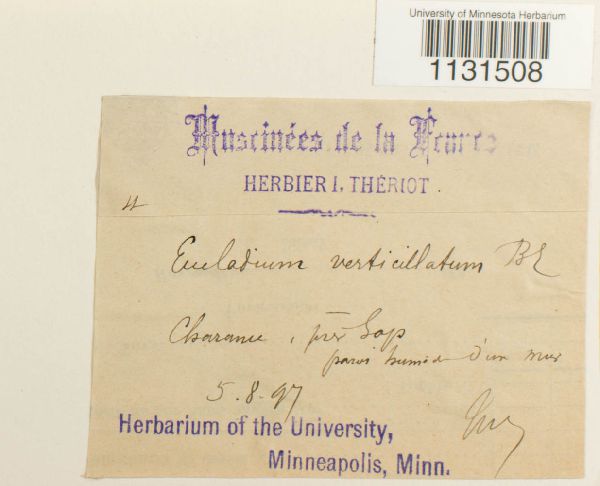 University of Minnesota Herbarium
1131508
Muscinées de la France
HERBIER I. THÉRIOT.
4
Eucladium verticillatum BE
Charance, près Gap
paroi humide d'un mur
5.8.97
Herbarium of the University,
Minneapolis, Minn.